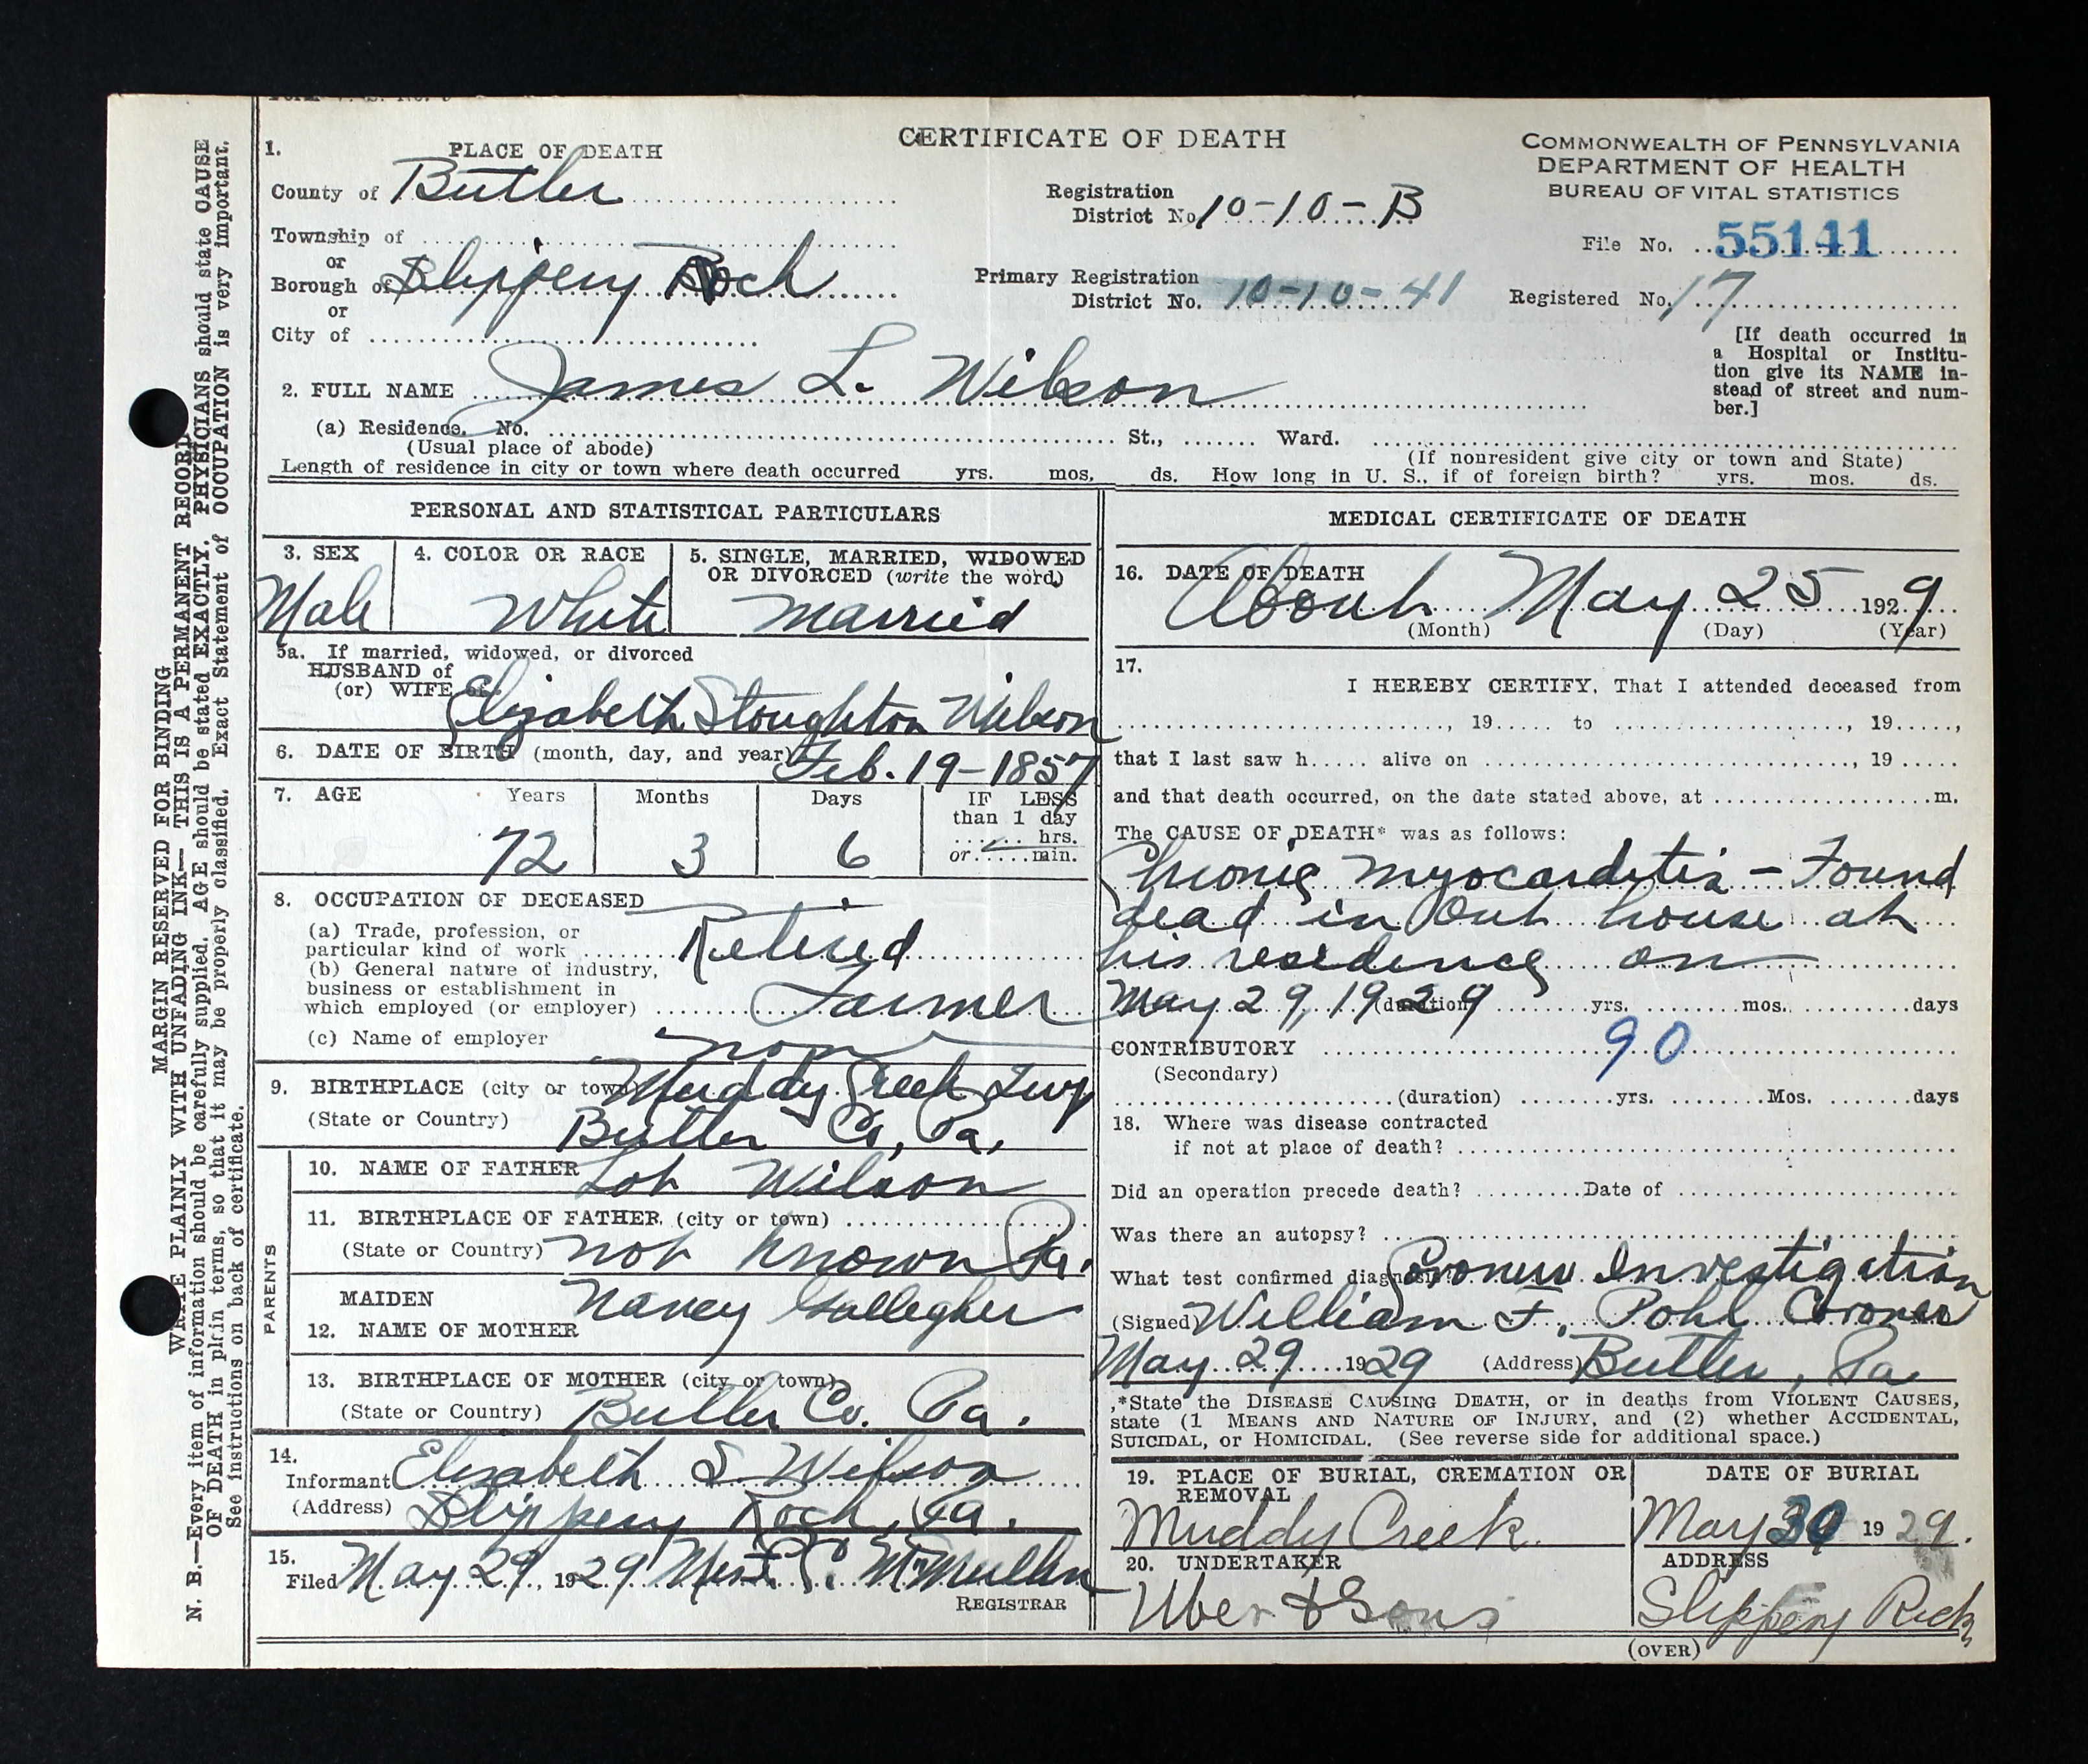 CERTIFICATE OF DEATH
COMMONWEALTH OF PENNSYLVANIA
DEPARTMENT OF HEALTH
BUREAU OF VITAL STATISTICS
1. PLACE OF DEATH
County of Butler
Township of
or
Borough of Slippery Rock
or
City of
Registration
District No. 10-10-B
Primary Registration
District No. 10-10-41
File No. 55141
Registered No. 17
[If death occurred in
a Hospital or Institu-
tion give its NAME in-
stead of street and num-
ber.]
2. FULL NAME James L. Wilson
(a) Residence. No. St., Ward.
(Usual place of abode) (If nonresident give city or town and State)
Length of residence in city or town where death occurred yrs. mos. ds. How long in U. S., if of foreign birth? yrs. mos. ds.
PERSONAL AND STATISTICAL PARTICULARS
3. SEX
Male
4. COLOR OR RACE
White
5. SINGLE, MARRIED, WIDOWED
OR DIVORCED (write the word)
Married
5a. If married, widowed, or divorced
HUSBAND of
(or) WIFE of Elizabeth Stoughton Wilson
6. DATE OF BIRTH (month, day, and year) Feb. 19-1857
7. AGE Years Months Days IF LESS
than 1 day
hrs.
or min.
72 3 6
8. OCCUPATION OF DECEASED
(a) Trade, profession, or
particular kind of work Retired
(b) General nature of industry,
business or establishment in
which employed (or employer) Farmer
(c) Name of employer
9. BIRTHPLACE (city or town) Muddy Creek Twp
(State or Country) Butler Co, Pa,
PARENTS
10. NAME OF FATHER Lot Wilson
11. BIRTHPLACE OF FATHER (city or town)
(State or Country) not known Pa.
MAIDEN
12. NAME OF MOTHER Nancy Gallegher
13. BIRTHPLACE OF MOTHER (city or town)
(State or Country) Butler Co. Pa.
14.
Informant Elizabeth S. Wilson
(Address) Slippery Rock, Pa.
15.
Filed May 29, 1929 McMullen
REGISTRAR
MEDICAL CERTIFICATE OF DEATH
16. DATE OF DEATH
About May 25 1929
(Month) (Day) (Year)
17.
I HEREBY CERTIFY, That I attended deceased from
, 19 to , 19 ,
that I last saw h alive on , 19
and that death occurred, on the date stated above, at m.
The CAUSE OF DEATH* was as follows:
Chronic myocarditis - Found
dead in Out house at
his residence on
May 29, 1929 (duration) yrs. mos. days
CONTRIBUTORY 90
(Secondary)
(duration) yrs. Mos. days
18. Where was disease contracted
if not at place of death?
Did an operation precede death? Date of
Was there an autopsy?
What test confirmed diagnosis? Coroners Investigation
(Signed) William F. Pohl Coroner
May 29 1929 (Address) Butler, Pa.
*State the DISEASE CAUSING DEATH, or in deaths from VIOLENT CAUSES,
state (1 MEANS AND NATURE OF INJURY, and (2) whether ACCIDENTAL,
SUICIDAL, or HOMICIDAL. (See reverse side for additional space.)
19. PLACE OF BURIAL, CREMATION OR
REMOVAL
Muddy Creek
DATE OF BURIAL
May 30 1929.
20. UNDERTAKER
Uber & Sons
ADDRESS
Slippery Rock
(OVER)
MARGIN RESERVED FOR BINDING
WRITE PLAINLY WITH UNFADING INK—THIS IS A PERMANENT RECORD
N. B.—Every item of information should be carefully supplied. AGE should be stated EXACTLY. PHYSICIANS should state CAUSE
OF DEATH in plain terms, so that it may be properly classified. Exact Statement of OCCUPATION is very important.
See instructions on back of certificate.